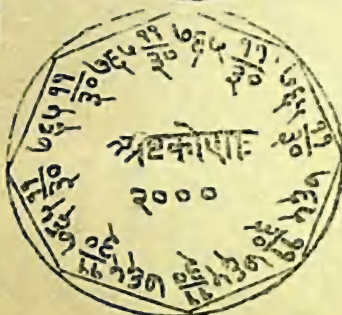 अष्टकोणः
२०००
७६५ ११/३०
७६५ ११/३०
७६५ ११/३०
७६५ ११/३०
७६५ ११/३०
७६५ ११/३०
७६५ ११/३०
७६५ ११/३०